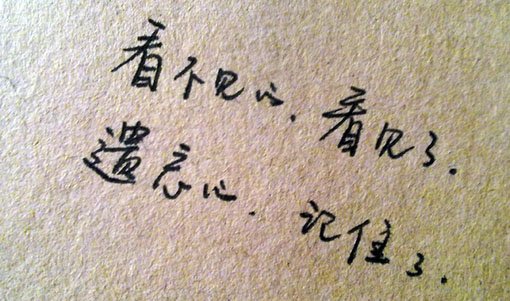 看不见的，看见了.
遗忘的.记住了.